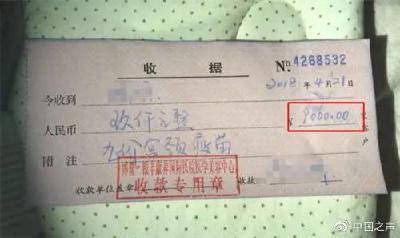 收据 No 4268532
2018年4月21日
今收到
人民币 玖仟元整 ¥ 9000.00
附注 九价宫颈疫苗
收款单位盖章 收款
收款专用章
@中国之声